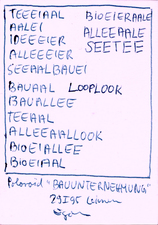 TEEEIAAL BIOEIERAALE
AALEI ALLEEAALE
IDEEEIER SEETEE
ALLEEEIER
SEEAALBAUEI
BAUAAL LOOPLOOK
BAUALLEE
TEEAAL
ALLEEAALLOOK
BIOEIALLEE
BIOEIAAL
"BAUUNTERNEHMUNG"